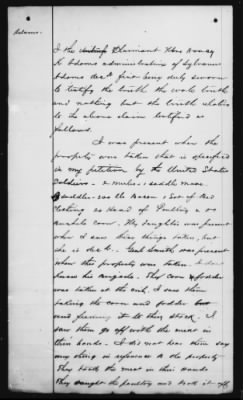 Adams.
I the Claimant Mrs Nancy
K Adams administratrix of Sylvanus
Adams decd first being duly sworn
to testify the truth the whole truth
and nothing but the truth relative
to the above claim testified as
follows.
I was present when the
property was taken that is specified
in my petition by the United States
Soldiers - 2 mules 1 saddle mare
1 saddle - 200 lbs Bacon 1 Set of Bed
Clothing 20 Head of Poultry &
. My daughter was present
when I saw these things taken, but
she is dead. Smith was present
when this property was taken. I don't
know his brigade. The Corn & fodder
was taken at the crib. I saw them
taking the corn and fodder but
and feeding it to their stock. I
saw them go off with the meat in
their hands. I did not hear them say
any thing in reference to the property
They had the meat in their hands
They caught the poultry and took it off